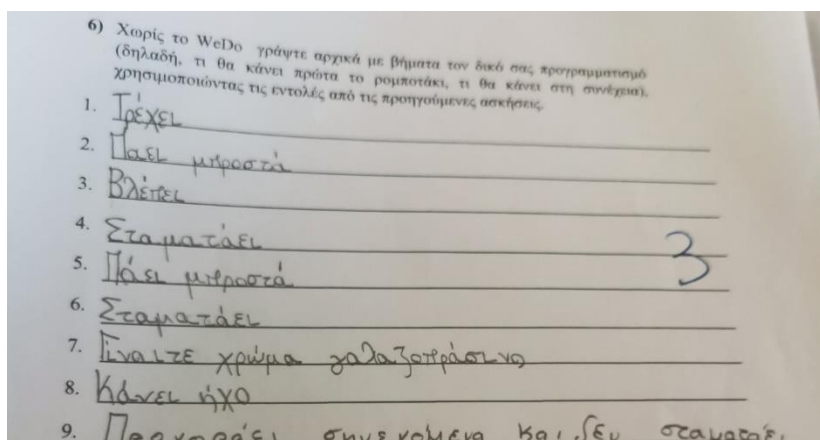 6) Χωρίς το WeDo γράψτε αρχικά με βήματα τον δικό σας προγραμματισμό
(δηλαδή, τι θα κάνει πρώτα το ρομποτάκι, τι θα κάνει στη συνέχεια),
χρησιμοποιώντας τις εντολές από τις προηγούμενες ασκήσεις.
1. Τρέχει
2. Παει μπροστά
3. Βλέπει
4. Σταματάει
3
5. Πάει μπροστά
6. Σταματάει
7. Γίναιτε χρώμα γαλαζοπράσινο
8. Κάνει ήχο
9. σηνεχόμενα και δεν σταματάει